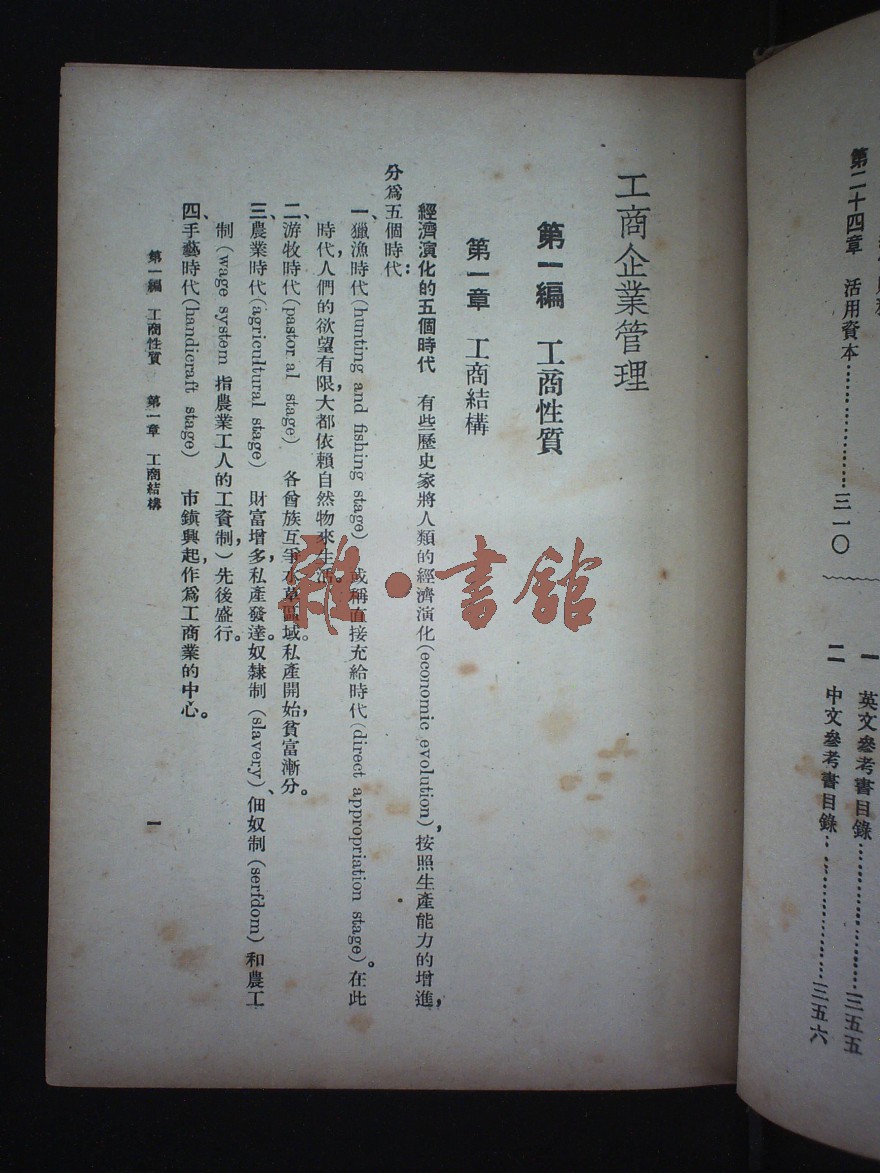 第二十四章 活用資本…………………三一〇
一 英文參考書目錄…………………三五五
二 中文參考書目錄…………………三五六
工商企業管理
第一編 工商性質
第一章 工商結構
經濟演化的五個時代 有些歷史家將人類的經濟演化(economic evolution),按照生產能力的增進,
分爲五個時代:
一、獵漁時代(hunting and fishing stage) 或稱直接充給時代(direct appropriation stage)。在此
時代,人們的欲望有限,大都依賴自然物來生活。
二、游牧時代(pastor al stage) 各酋族互爭水草區域。私產開始,貧富漸分。
三、農業時代(agricultural stage) 財富增多,私產發達。奴隸制(slavery)、佃奴制(serfdom)和農工
制(wage system 指農業工人的工資制)先後盛行。
四、手藝時代(handicraft stage) 市鎮興起,作爲工商業的中心。
第一編 工商性質 第一章 工商結構
一
雜·書館